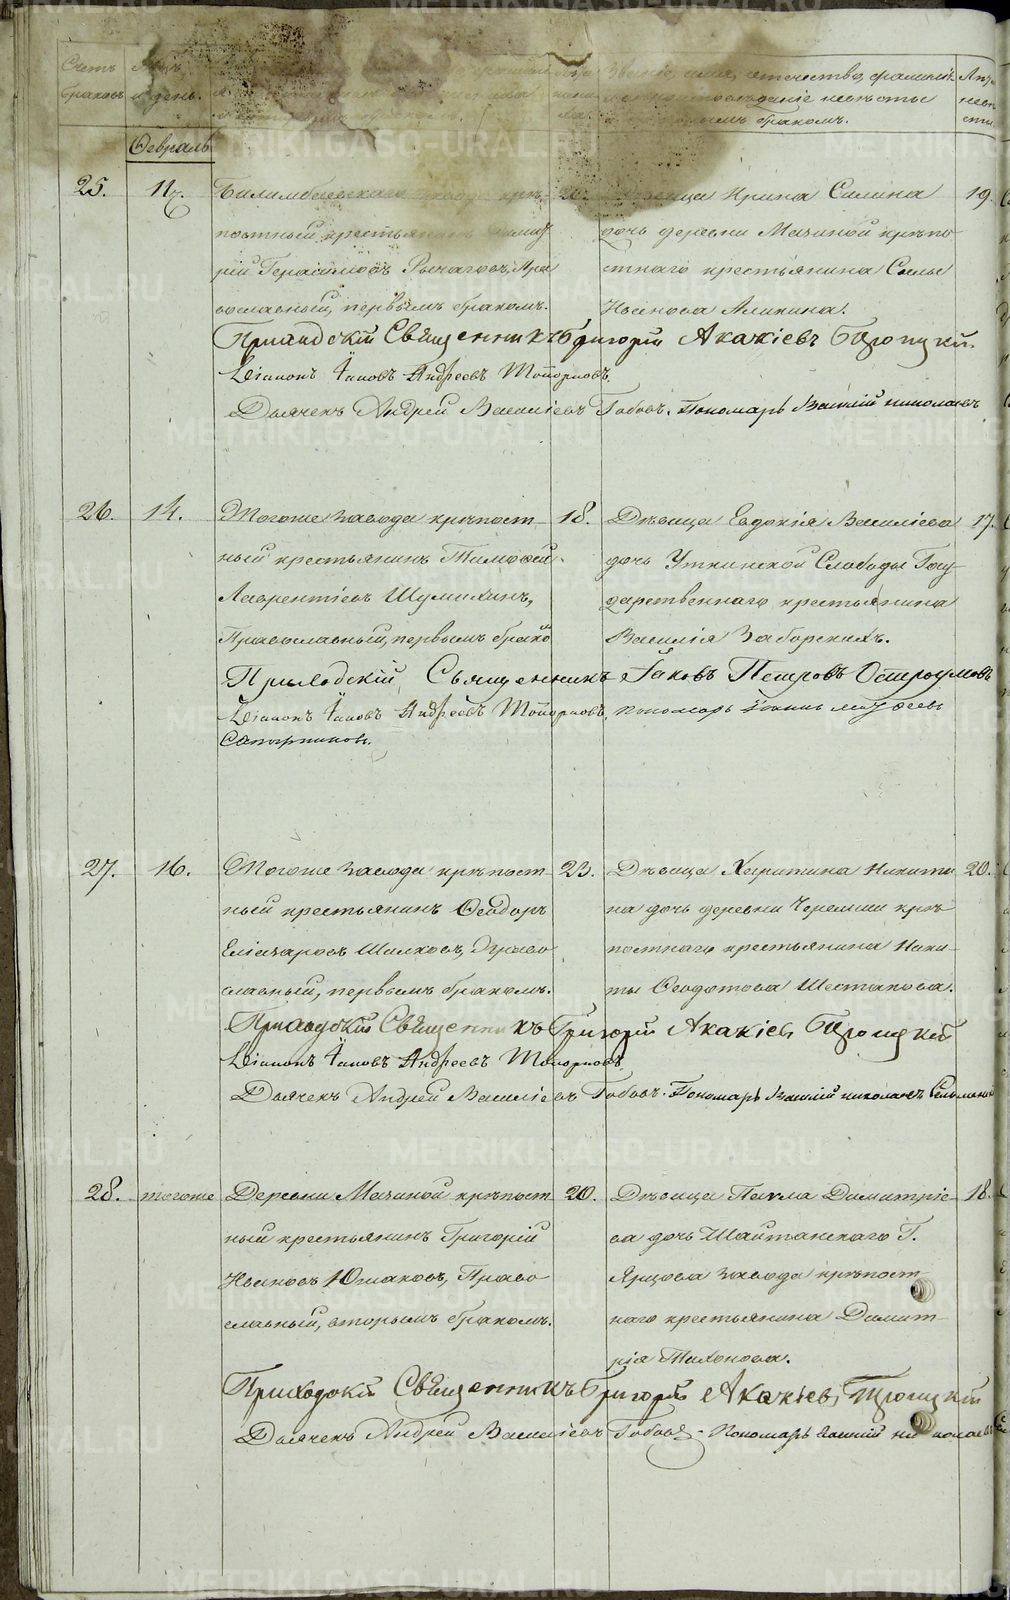 Счетъ
браковъ
и день.
Званіе, имя, отечество, фамилія
невѣсты
бракомъ.
Февраль
25.
11.
Билимбаевскаго завода крѣ-
постный крестьянинъ Димит
рій Герасимовъ Рычаговъ, Пра
вославный, первымъ бракомъ.
Дѣвица Ирина Силина
дочь деревни Мачиной крѣпо
стнаго крестьянина Силы
Иванова Аликина.
19.
Приходскій Священникъ Григорій Акакіевъ Троицкій.
Діаконъ Іаковъ Андреевъ Топорковъ,
Дьячекъ Андрей Василіевъ Бобовъ. Пономарь Василій николаевъ
26.
14.
Тогоже завода крѣпост
ный крестьянинъ Тимофей
Лаврентіевъ Шумихинъ,
Православный, первымъ брако
18.
Дѣвица Евдокія Василіева
дочь Уткинской Слободы Госу-
дарственнаго крестьянина
Василія Заборскихъ.
17.
Приходскій Священникъ Іаковъ Петровъ Остроумовъ
Діаконъ Іаковъ Андреевъ Топорковъ, пономарь
Сапожниковъ.
27.
16.
Тогоже завода крѣпост
ный крестьянинъ Ѳеодоръ
Еліазаровъ Шилковъ, Право
славный, первымъ бракомъ.
23.
Дѣвица Харитина Никити
на дочь деревни Черемши крѣ
постнаго крестьянина Ники-
ты Ѳеодотова Шестакова.
20.
Приходскій Священникъ Григорій Акакіевъ Троицкій
Діаконъ Іаковъ Андреевъ Топорковъ,
Дьячекъ Андрей Василіевъ Бобовъ. Пономарь Василій николаевъ
28.
тогоже
Деревни Мачиной крѣпост
ный крестьянинъ Григорій
Ивановъ Юшаковъ, Право
славный, вторымъ бракомъ.
20.
Дѣвица Павла Димитріе-
ва дочь Шайтанскаго Г.
Ярцова завода крѣпост-
наго крестьянина Димит-
рія Тихонова.
18.
Приходскій Священникъ Григорій Акакіевъ Троицкій
Дьячекъ Андрей Василіевъ Бобовъ. Пономарь Василій николаевъ
METRIKI.GASO-URAL.RU